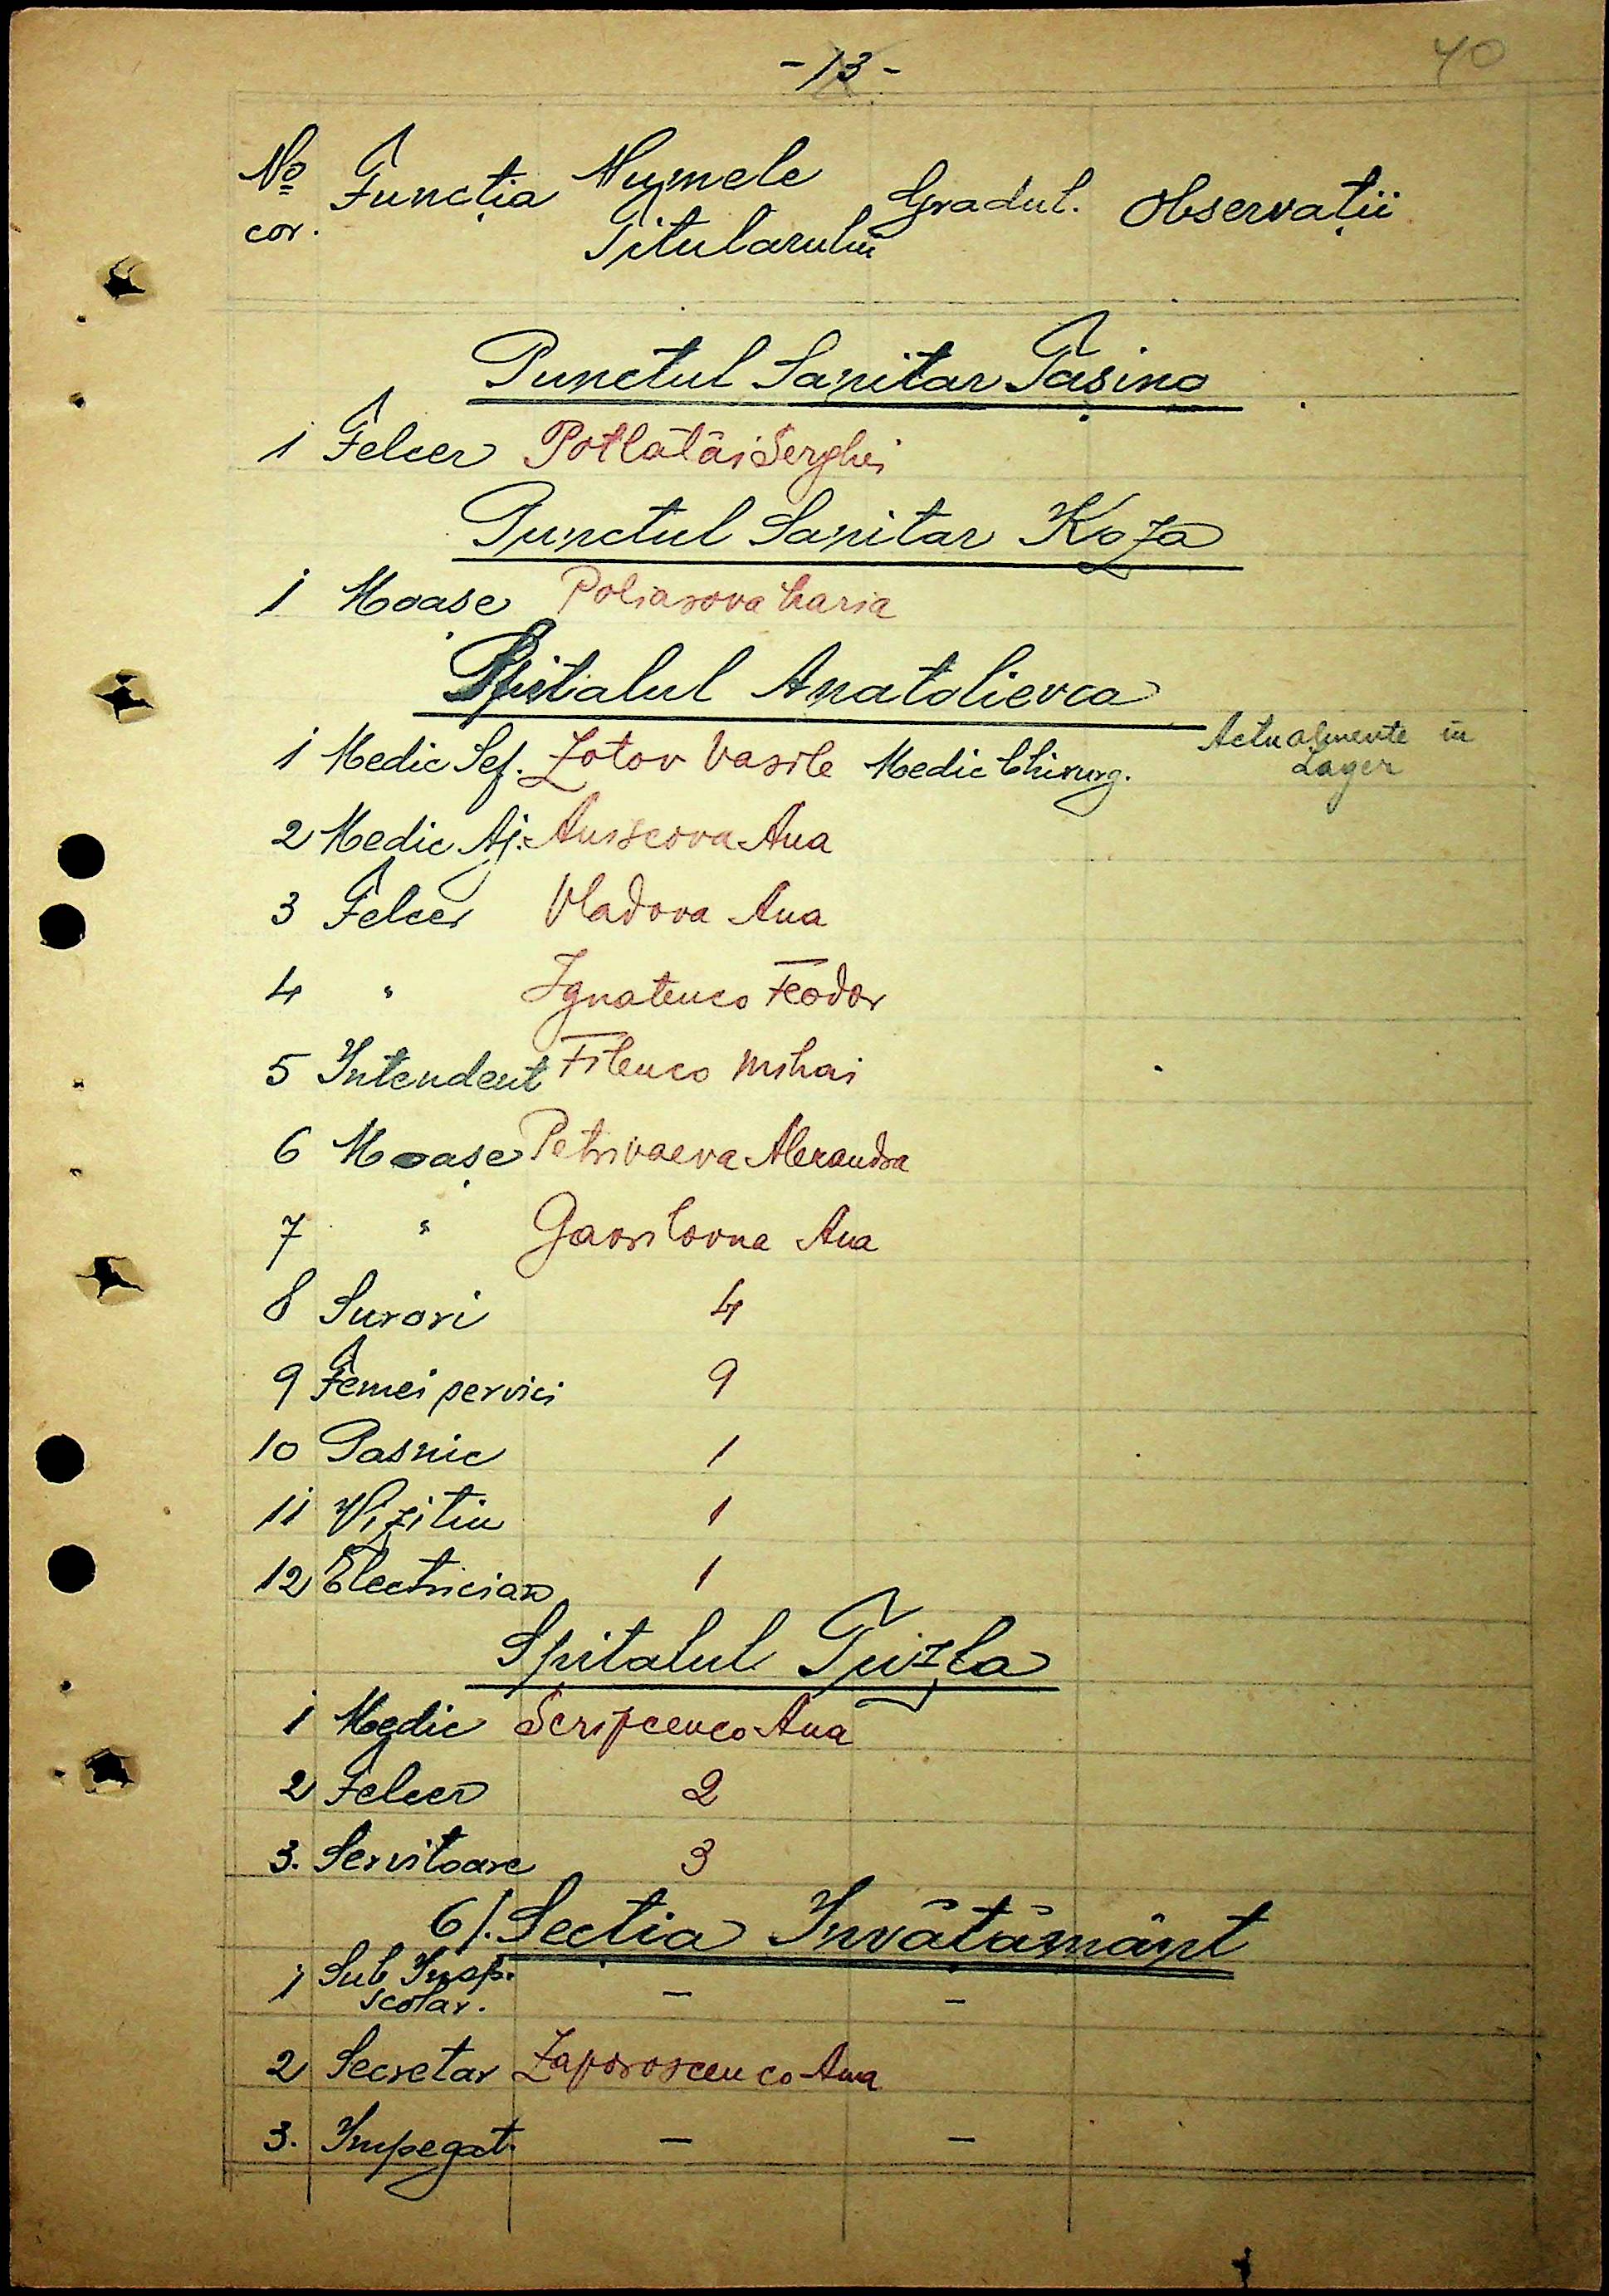 -13-
40
No cor. Funcția Numele Titularului Gradul. Observații
Punctul Sanitar Tașino
1 Felcer Potlatăi Serghei
Punctul Sanitar Koza
1 Moașe Poliasova Maria
Spitalul Anatolievca
1 Medic Șef. Zotov Vasile Medic Chirurg. Actualmente în Lager
2 Medic Aj. Aniscova Ana
3 Felcer Vladova Ana
4 " Ignatenco Feodor
5 Intendent Filenco Mihai
6 Moașe Petrivaeva Alexandra
7 " Gavrilovna Ana
8 Surori 4
9 Femei servici 9
10 Pasnic 1
11 Vizitiu 1
12 Electrician 1
Spitalul Tuzla
1 Medic Scripcenco Ana
2 Felcer 2
3. Servitoare 3
6/. Secția Învățământ
1 Sub Insp. scolar. — —
2 Secretar Zaporoscenco Ana
3. Impegat. — —